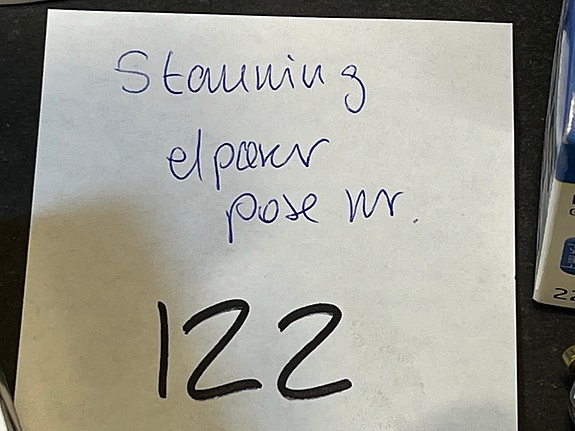 Stauning
elpærer
pose nr.
122
22